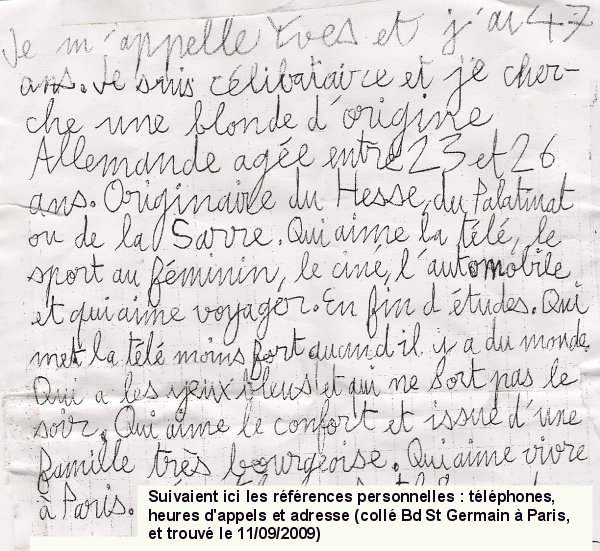 Je m'appelle Yves et j'ai 47
ans. Je suis célibataire et je cher-
che une blonde d'origine
Allemande agée entre 23 et 26
ans. Originaire du Hesse, du Palatinat
ou de la Sarre. Qui aime la télé, le
sport au féminin, le ciné, l'automobile
et qui aime voyager. En fin d'études. Qui
met la télé moins fort quand il y a du monde.
Qui a les yeux bleus et qui ne sort pas le
soir. Qui aime le confort et issue d'une
famille très bourgeoise. Qui aime vivre
à Paris.
Suivaient ici les références personnelles : téléphones,
heures d'appels et adresse (collé Bd St Germain à Paris,
et trouvé le 11/09/2009)